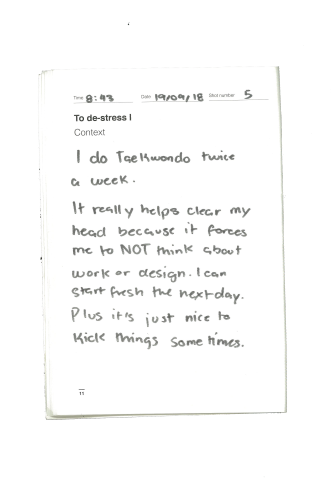 Time 8:43 Date 19/09/18 Shot number 5
To de-stress I
Context
I do Taekwondo twice
a week.
It really helps clear my
head because it forces
me to NOT think about
work or design. I can
start fresh the next day.
Plus it's just nice to
kick things sometimes.
11